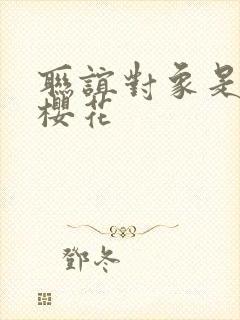 聯誼對象是
櫻花
鄧冬